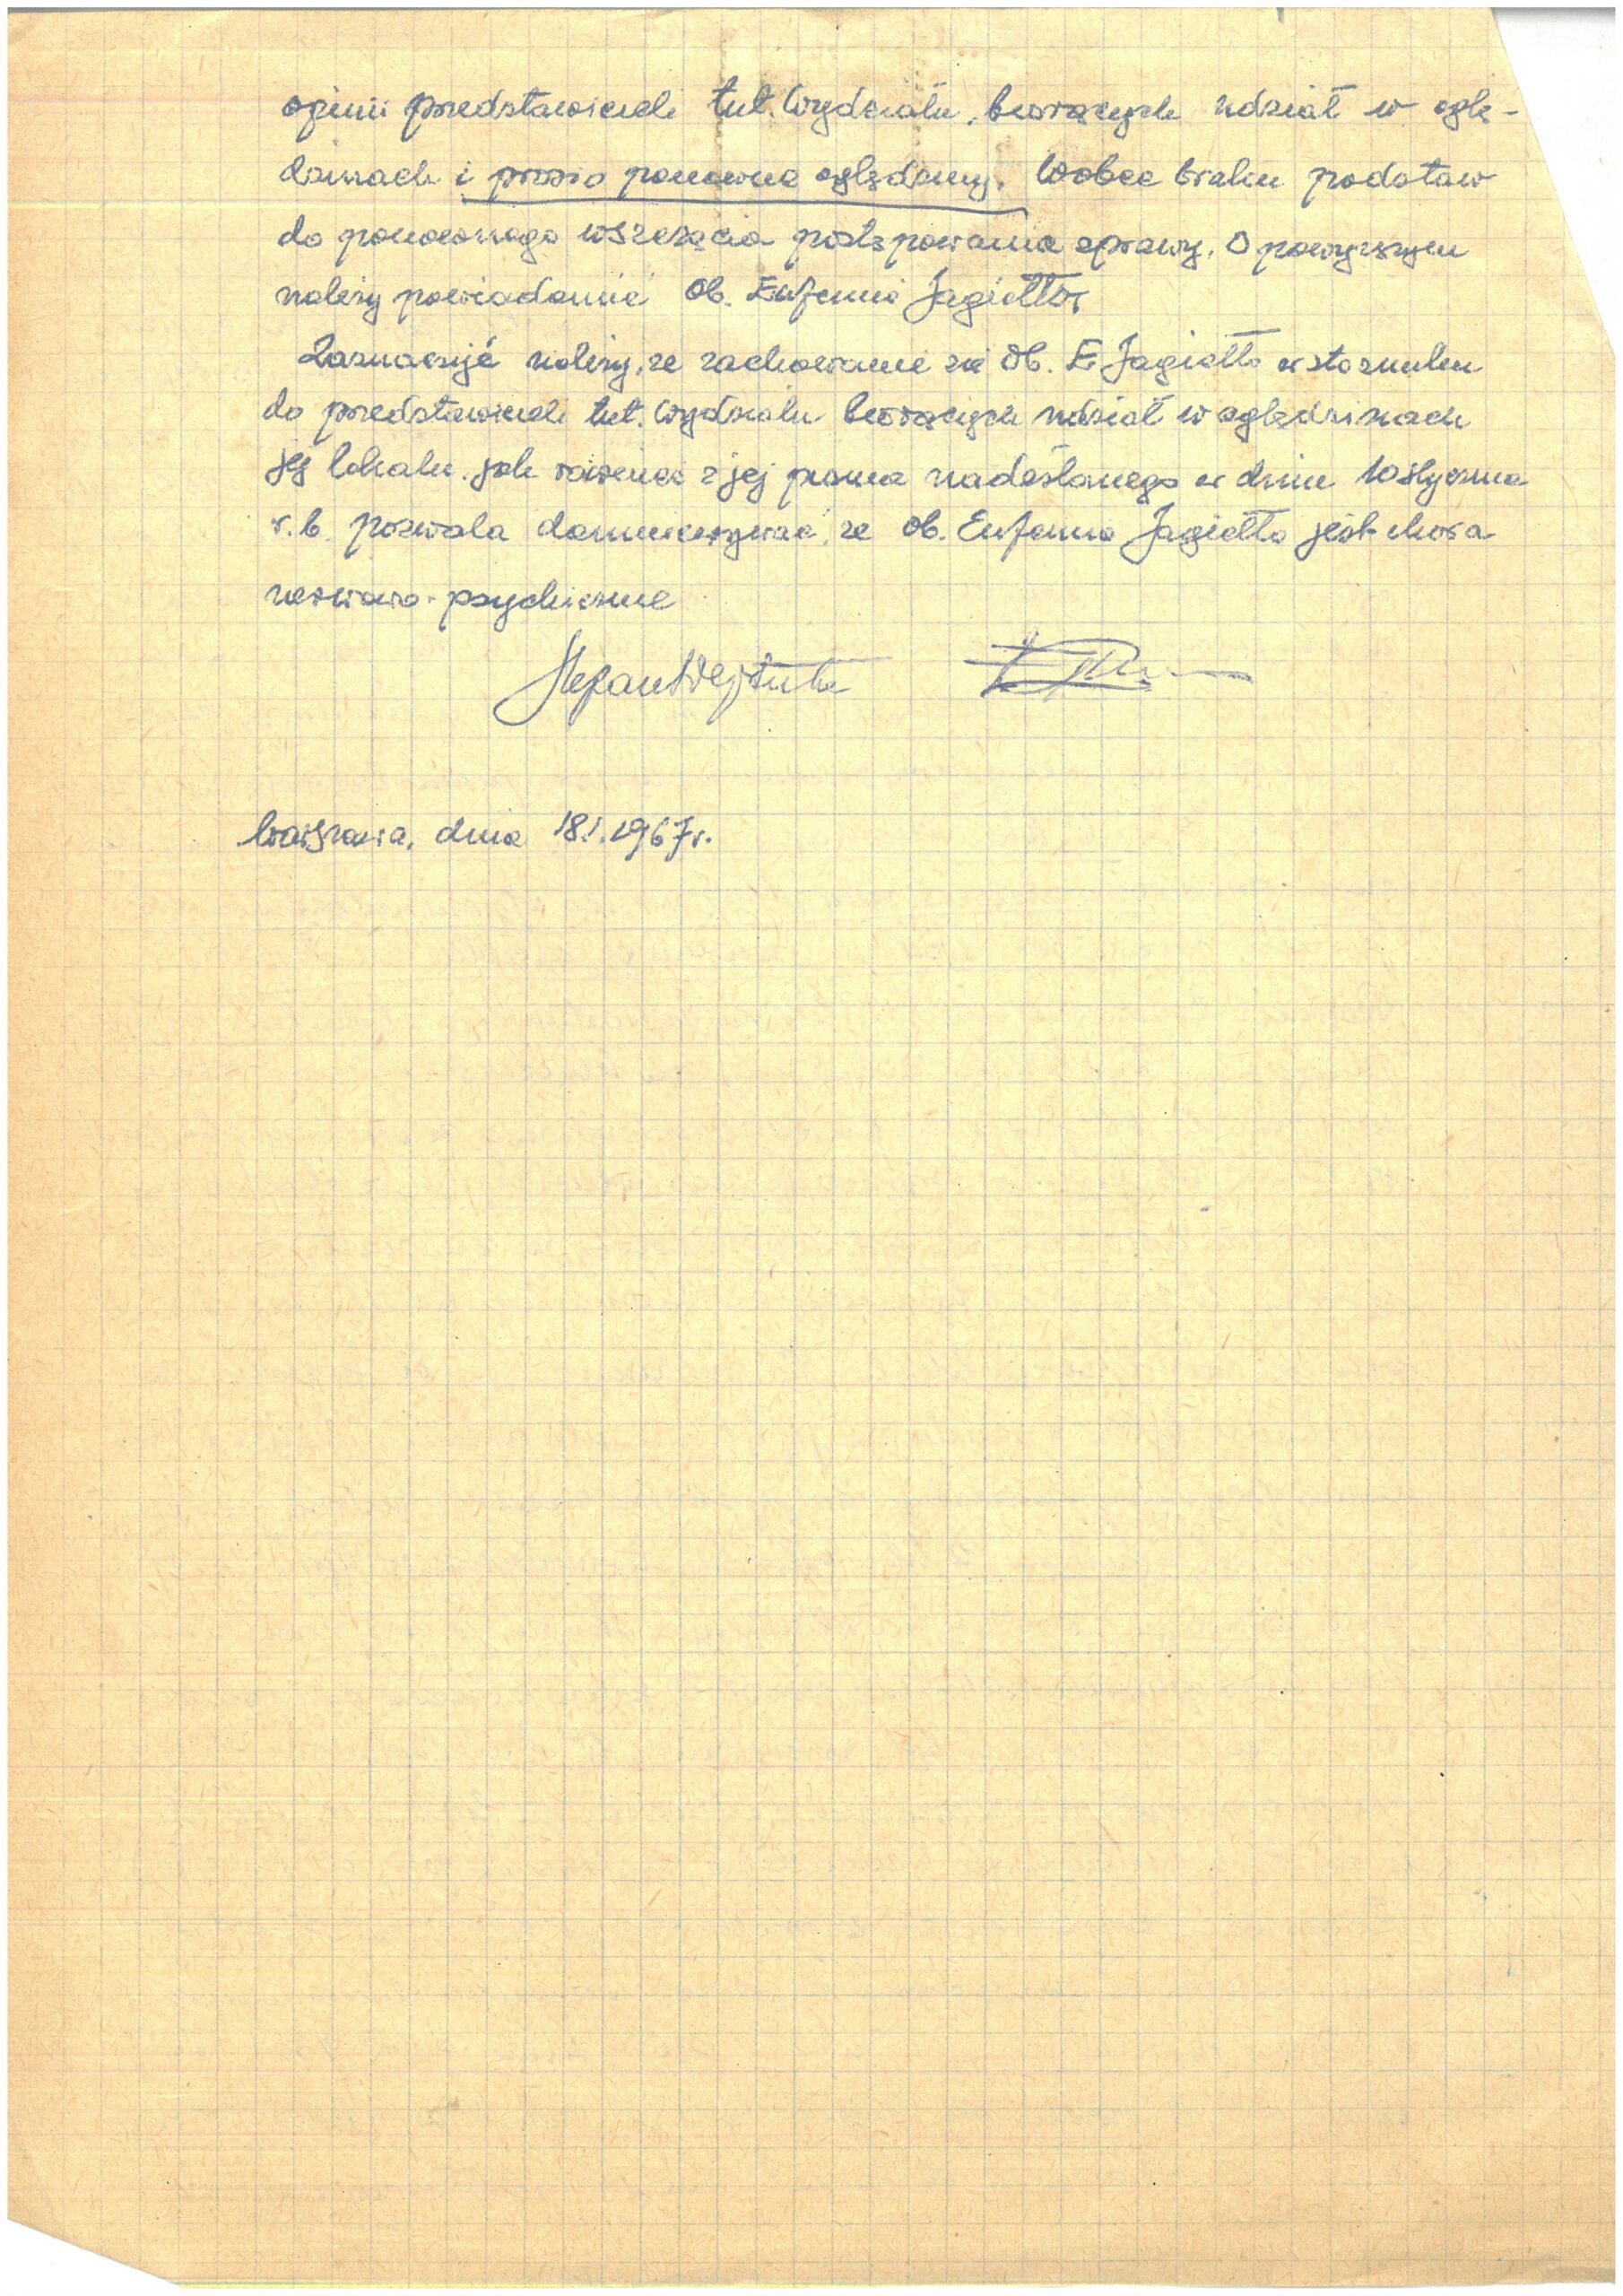 opinii przedstawicieli tut. Wydziału, biorących udział w oglę-
dzinach i prosi o ponowne oględziny. Wobec braku podstaw
do ponownego wszczęcia postępowania sprawy. O powyższym
należy powiadomić Ob. Eufemię Jagiełło
Zaznaczyć należy, że zachowanie się Ob. E. Jagiełło w stosunku
do przedstawicieli tut. Wydziału biorących udział w oględzinach
jej lokalu jak również z jej pisma nadesłanego w dniu 10 stycznia
r.b. pozwala domniemywać, że Ob. Eufemia Jagiełło jest chora
nerwowo-psychicznie
Stefan
Warszawa, dnia 18.I.1967 r.